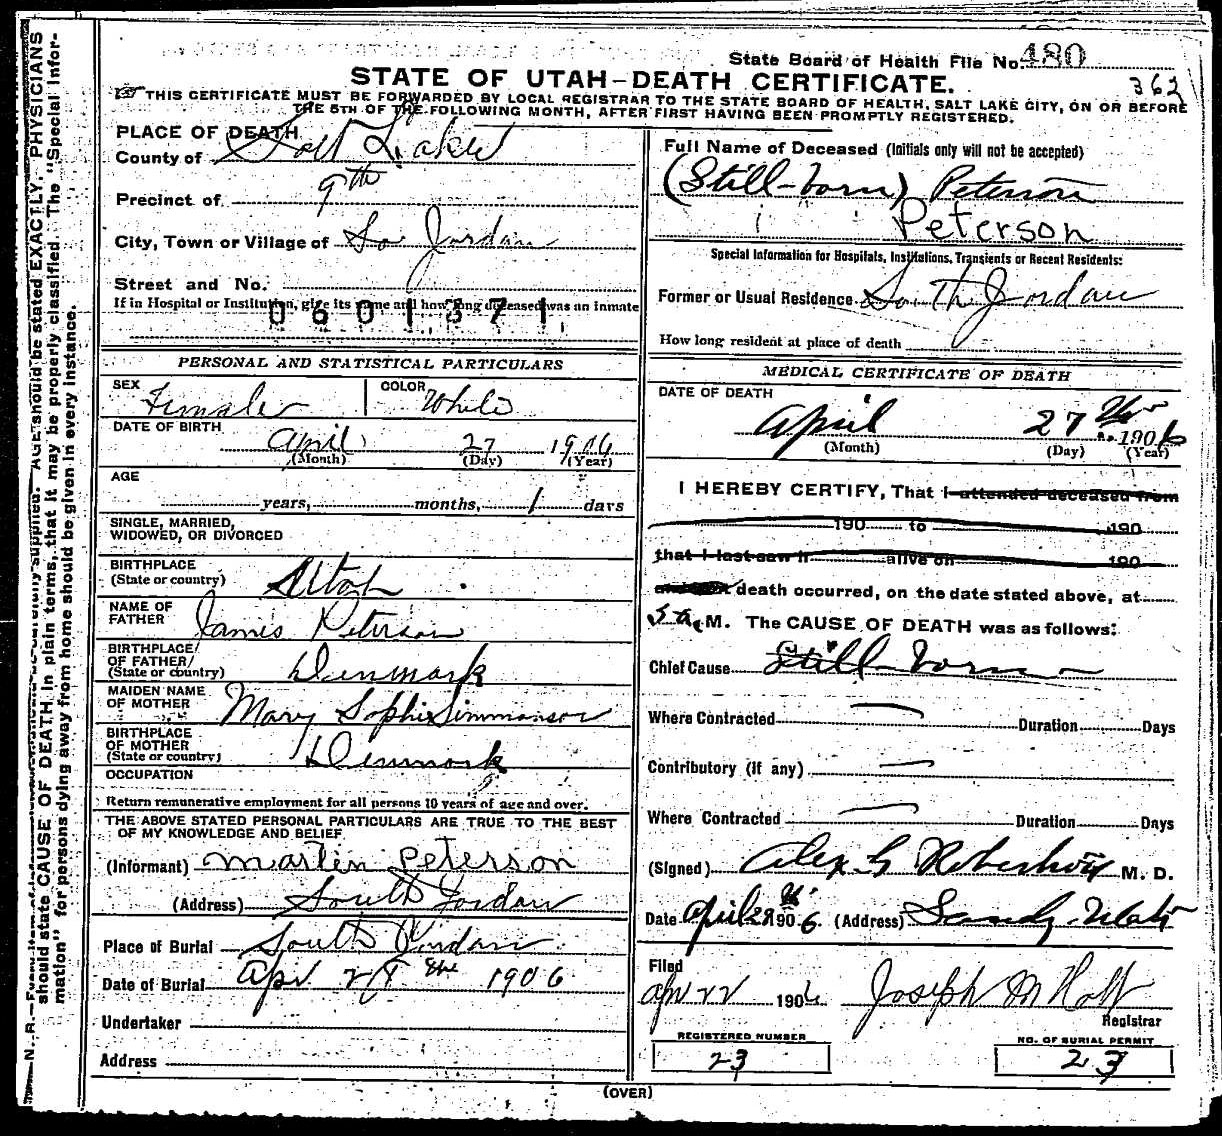 State Board of Health File No. 480
362
STATE OF UTAH—DEATH CERTIFICATE.
THIS CERTIFICATE MUST BE FORWARDED BY LOCAL REGISTRAR TO THE STATE BOARD OF HEALTH, SALT LAKE CITY, ON OR BEFORE
THE 5TH OF THE FOLLOWING MONTH, AFTER FIRST HAVING BEEN PROMPTLY REGISTERED.
PLACE OF DEATH
County of Salt Lake
Precinct of 9th
City, Town or Village of So Jordan
Street and No.
If in Hospital or Institution, give its name and how long deceased was an inmate
0601371
PERSONAL AND STATISTICAL PARTICULARS
SEX Female COLOR White
DATE OF BIRTH
April 27 1906
(Month) (Day) (Year)
AGE
years, months, 1 days
SINGLE, MARRIED,
WIDOWED, OR DIVORCED
BIRTHPLACE
(State or country) Utah
NAME OF
FATHER James Peterson
BIRTHPLACE
OF FATHER
(State or country) Denmark
MAIDEN NAME
OF MOTHER Mary Sophie Simmonson
BIRTHPLACE
OF MOTHER
(State or country) Denmark
OCCUPATION
Return remunerative employment for all persons 10 years of age and over.
THE ABOVE STATED PERSONAL PARTICULARS ARE TRUE TO THE BEST
OF MY KNOWLEDGE AND BELIEF
(Informant) Martin Peterson
(Address) South Jordan
Place of Burial South Jordan
Date of Burial Apr 28 the 1906
Undertaker
Address
Full Name of Deceased (Initials only will not be accepted)
(Still-born) Peterson
Peterson
Special Information for Hospitals, Institutions, Transients or Recent Residents:
Former or Usual Residence South Jordan
How long resident at place of death
MEDICAL CERTIFICATE OF DEATH
DATE OF DEATH
April 27 1906
(Month) (Day) (Year)
I HEREBY CERTIFY, That I attended deceased from
190 to 190
that I last saw h alive on 190
death occurred, on the date stated above, at
5 a. M. The CAUSE OF DEATH was as follows:
Chief Cause Still-born
Where Contracted Duration Days
Contributory (if any)
Where Contracted Duration Days
(Signed) Alex G Robertson M. D.
Date April 28 1906. (Address) Sandy Utah
Filed
Apr 22 1906 Joseph M Holt
Registrar
REGISTERED NUMBER
23
NO. OF BURIAL PERMIT
23
(OVER)
should state CAUSE OF DEATH in plain terms, that it may be properly classified. The "Special Infor-
mation" for persons dying away from home should be given in every instance.